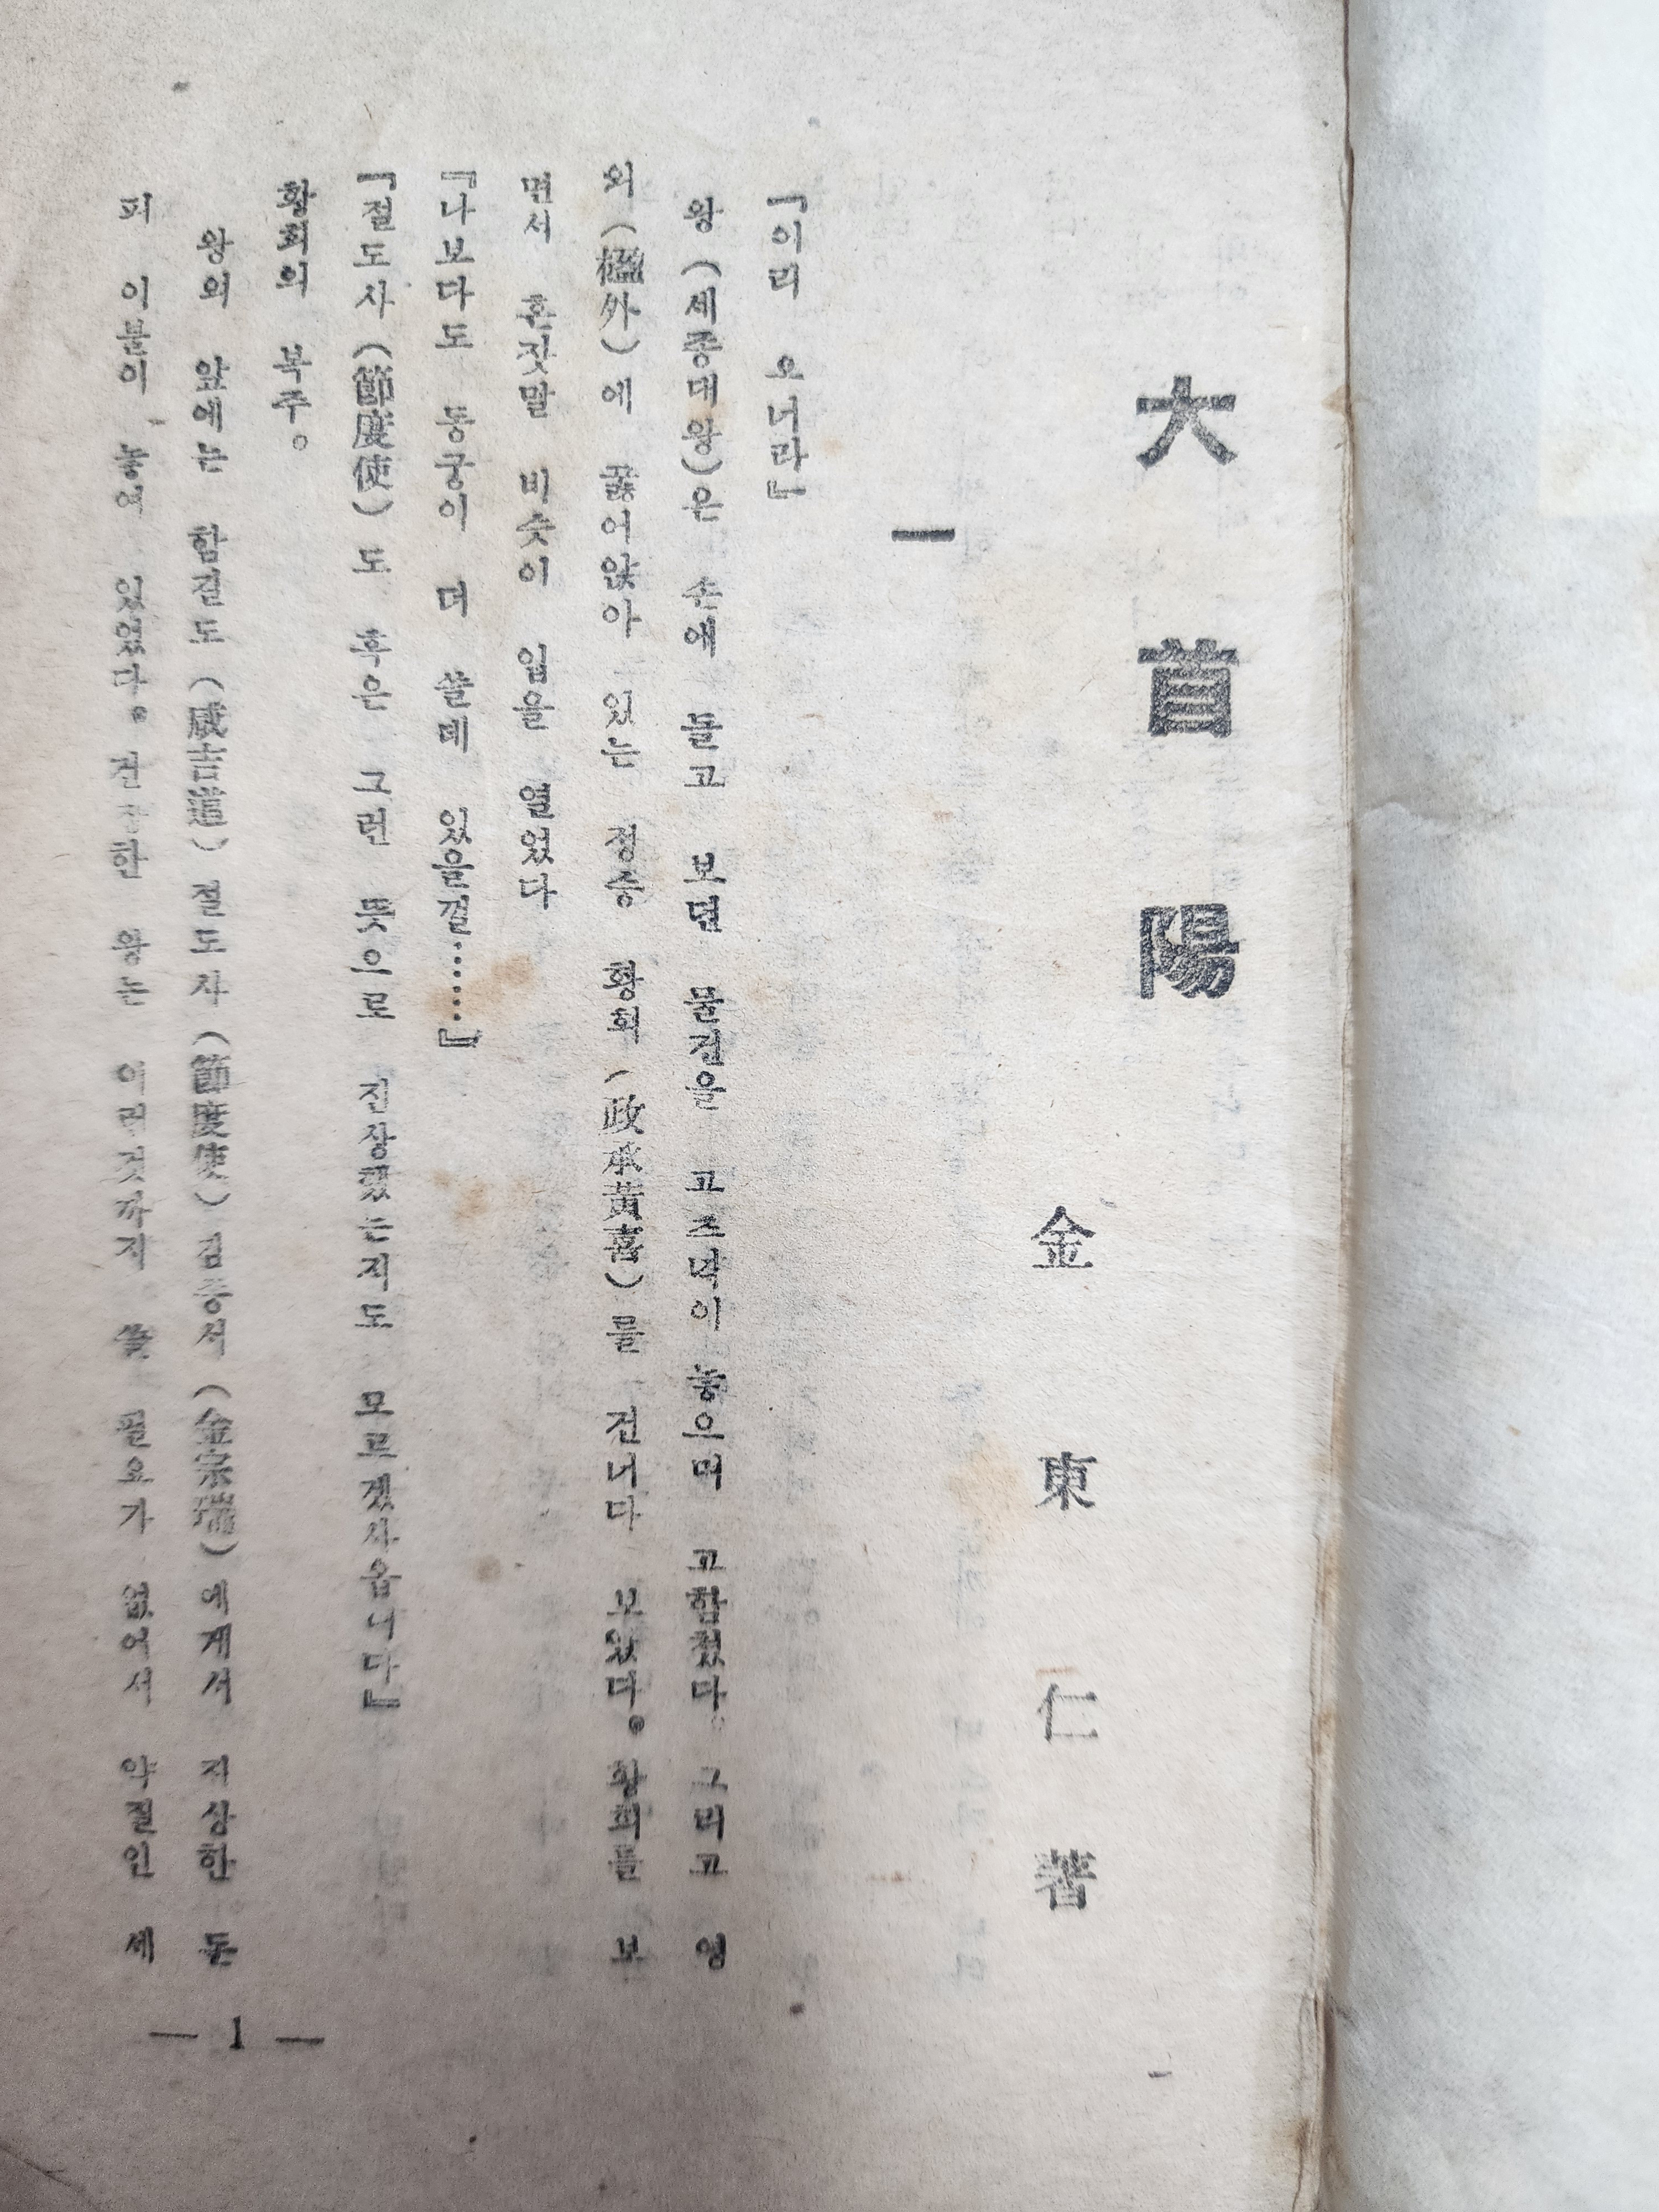 大首陽
金東仁 著
一
『이리 오너라』
왕 (세종대왕)은 손에 들고 보던 물건을 고즈막이 놓으며 고함쳤다. 그리고 영
외 (楹外) 에 꿇어앉아 있는 정승 황희 (政承黃喜) 를 건너다 보았다。황희를 보
면서 혼잣말 비슷이 입을 열었다
『나보다도 동궁이 더 쓸데 있을껄………』
『절도사 (節度使) 도 혹은 그런 뜻으로 진상했는지도 모르겠사옵니다』
황희의 복주。
왕의 앞에는 함길도 (咸吉道) 절도사 (節度使) 김종서 (金宗瑞) 에게서 지상한 돈
피 이불이 놓여 있었다。건강한 왕는 이런것까지 쓸 필요가 없어서 약질인 세
— 1 —